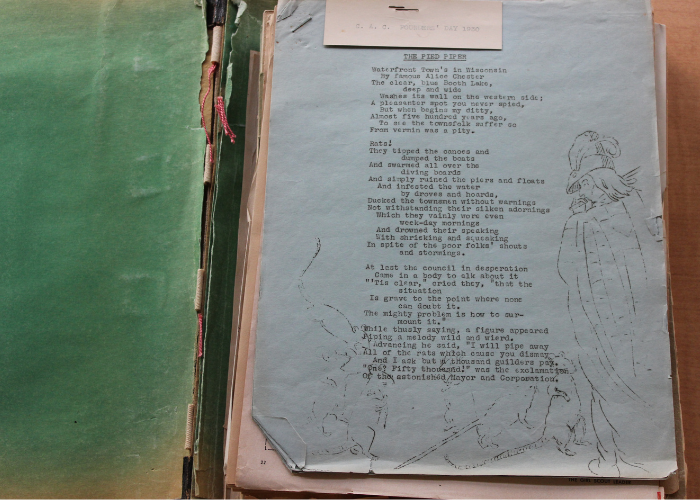 DAY 1930
THE PIED PIPER
Waterfront Town's in Wisconsin
By famous Alice Chester
The clear, blue Booth Lake,
deep and wide
Washes its wall on the western side;
A pleasanter spot you never spied,
But when begins my ditty,
Almost five hundred years ago,
To see the townsfolk suffer so
From vermin was a pity.
Rats!
They tipped the canoes and
dumped the boats
And swarmed all over the
diving boards
And simply ruined the piers and floats
And infested the water
by droves and hoards,
Ducked the townsmen without warnings
Not withstanding their silken adornings
Which they vainly wore even
week-day mornings
And drowned their speaking
With shrieking and squeaking
In spite of the poor folks' shouts
and stormings.
At last the council in desperation
Came in a body to talk about it
"'Tis clear," cried they, "that the
situation
Is grave to the point where none
can doubt it.
The mighty problem is how to sur-
mount it."
While thusly saying, a figure appeared
Piping a melody wild and wierd.
Advancing he said, "I will pipe away
All of the rats which cause you dismay
And I ask but a thousand guilders pay.
"One? Fifty thousand!" was the exclamation
Of the astonished Mayor and Corporation.